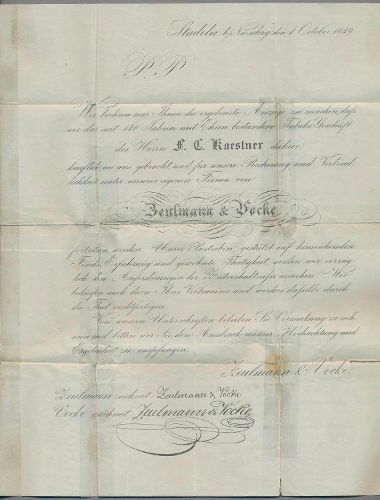 Stadeln b/ Nürnberg den 1 October 1849
P. P.
Wir beehren uns Ihnen die ergebenste Anzeige zu machen, daß
wir das seit 140 Jahren mit Ehren bestandene Tabaks Geschäft
des Herrn F. C. Kaestner dahier,
käuflich an uns gebracht und für unsere Rechnung und Verbind
lichkeit unter unserer eigenen Firma von
Zeulmann & Vocke
fortsetzen werden. Unser Bestreben, gestützt auf hinreichenden
Fonds, Erfahrung und gewohnte Thätigkeit, werden wir
den Anforderungen der Zeitverhältnisse Wir
auch dero Ihres Vertrauens und werden dasselbe durch
die That rechtfertigen
Von unseren Unterschriften belieben Sie Vormerkung zu neh
men und bitten wir Sie den Ausdruck unserer Hochachtung und
Ergebenheit zu empfangen.
Zeulmann & Vocke.
Zeulmann zeichnet Zeulmann & Vocke
Vocke zeichnet Zeulmann & Vocke.